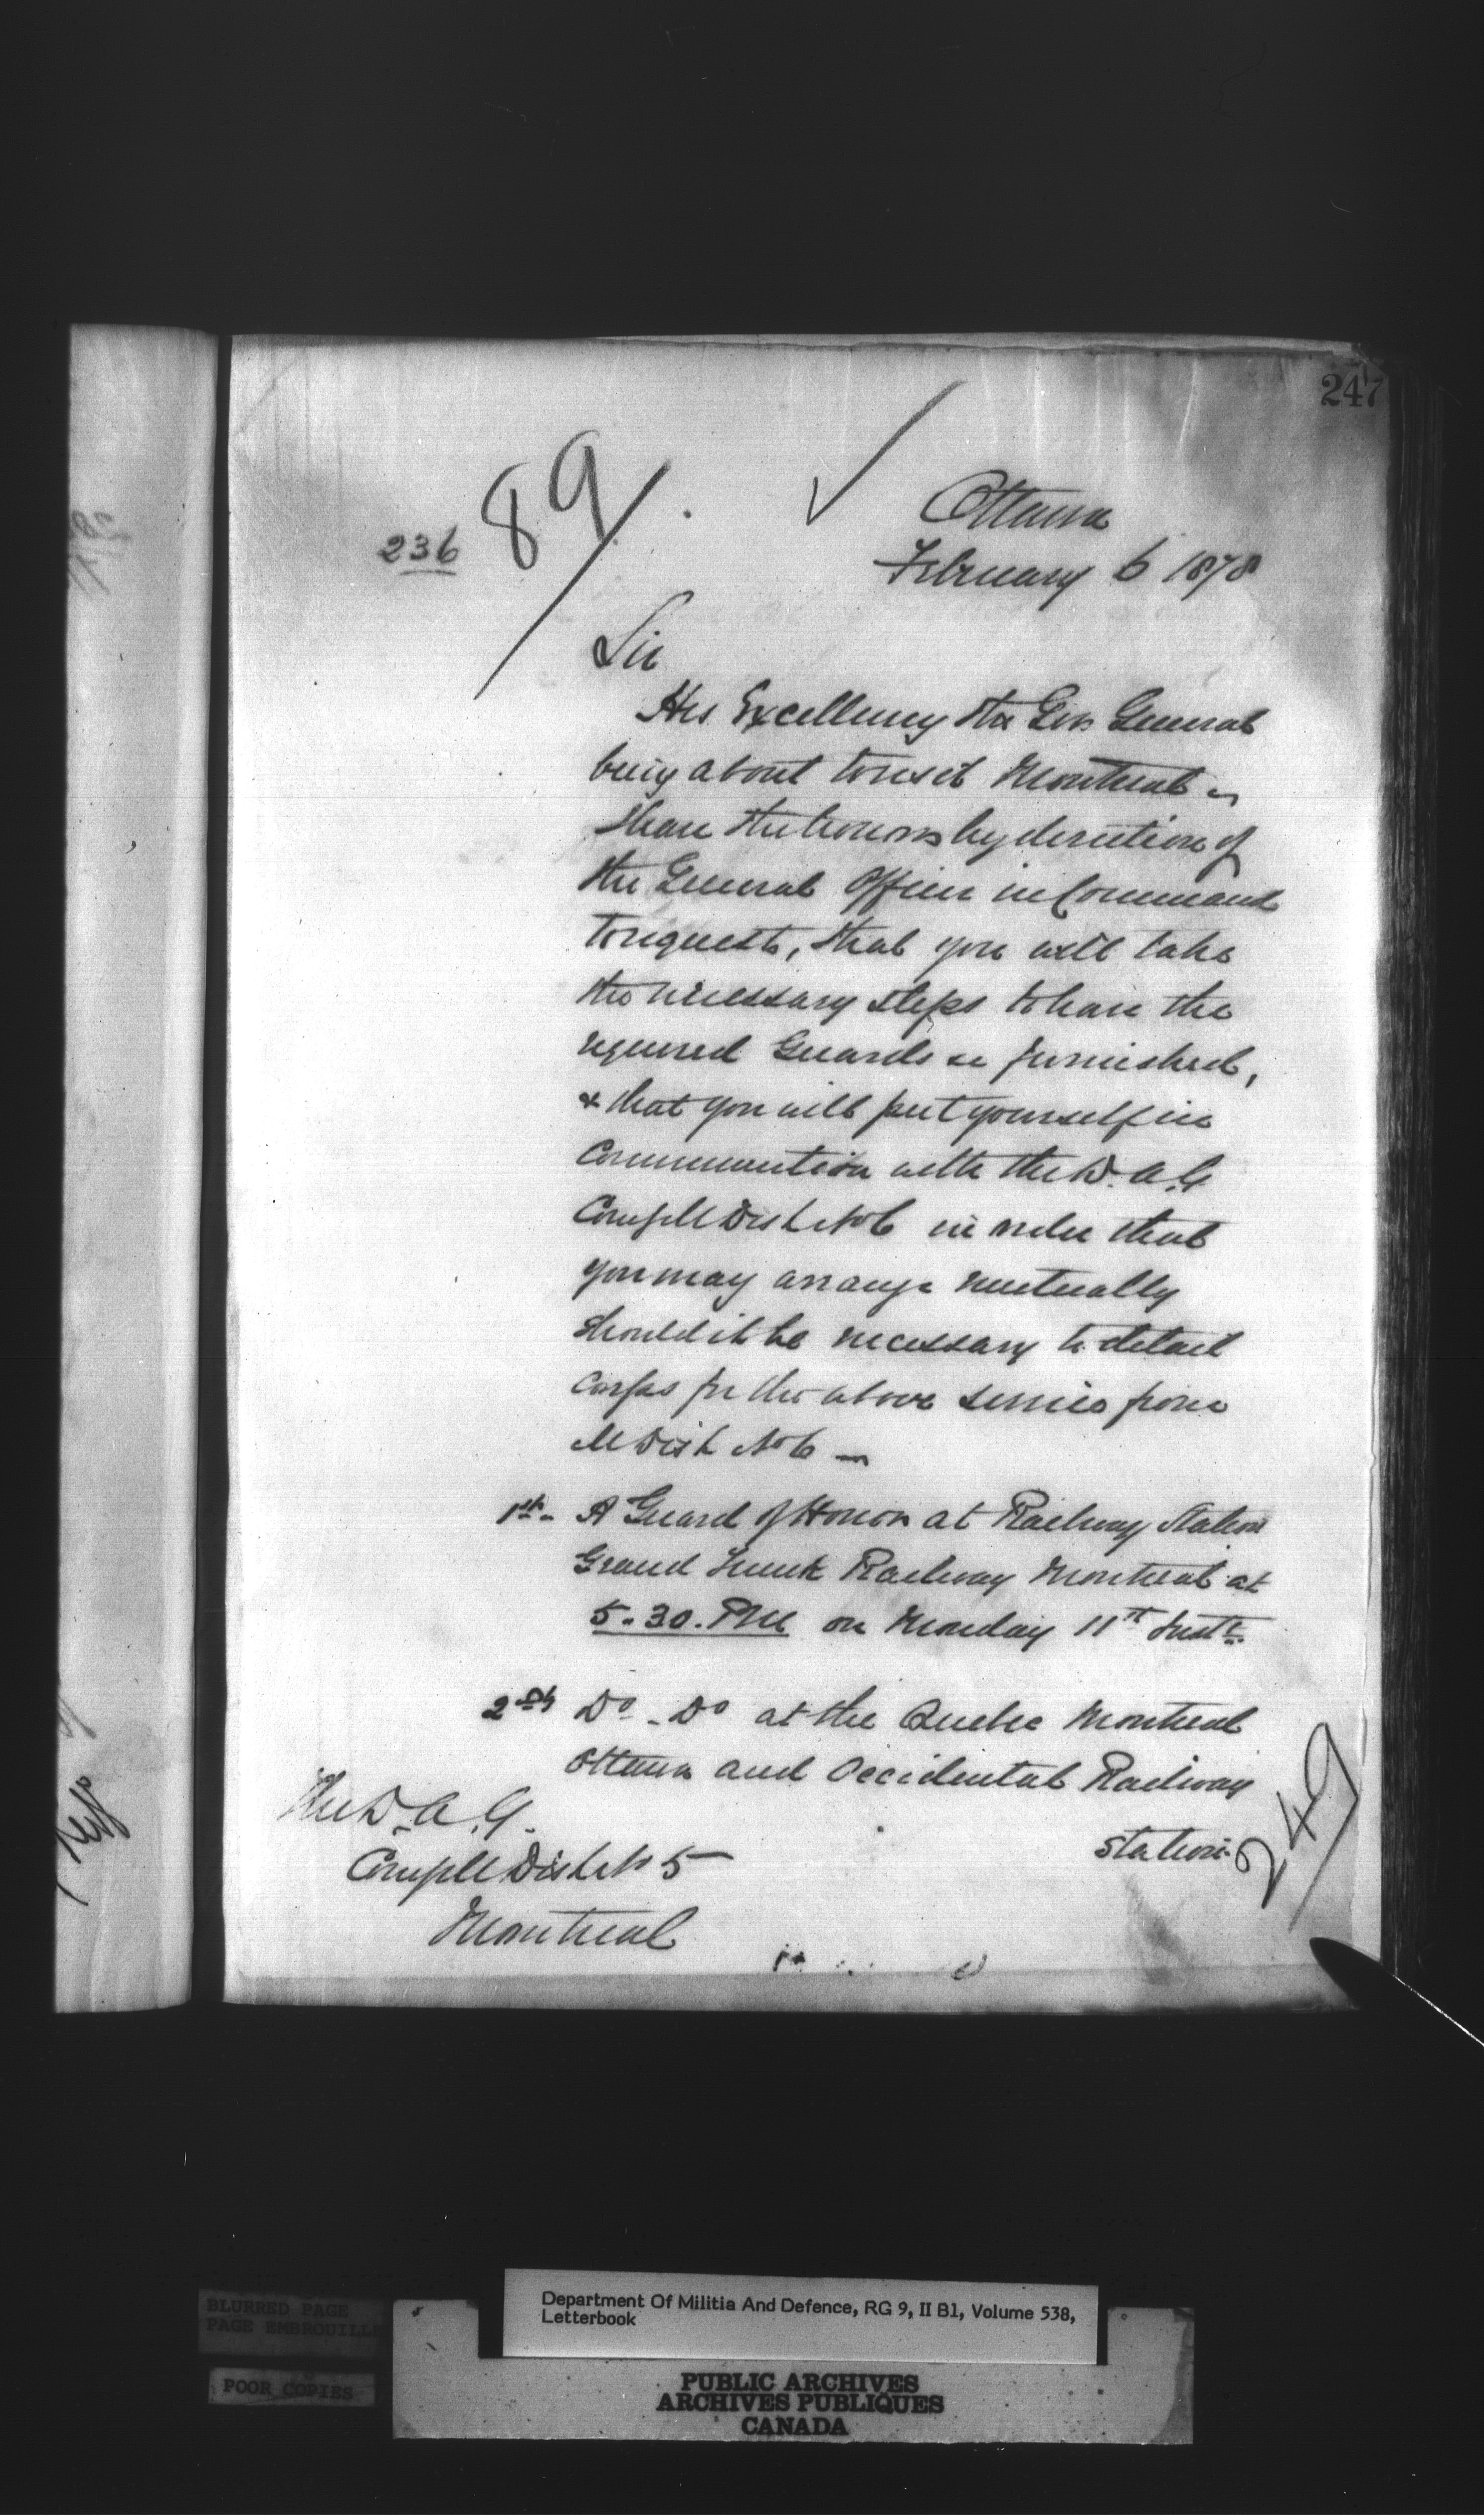 247
89
236
Ottawa
February 6 1878
Sir
His Excellency the Gov General
being about to visit Montreal
I have the honor by direction of
the General Officer in Command
to request, that you will take
the necessary steps to have the
required Guards &c furnished,
& that you will put yourself in
Communication with the D. A. G
Comg M Dist No 6 in order that
you may arrange mutually
should it be necessary to detail
Corps for the above service from
M Dist No 6 —
1st - A Guard of Honor at Railway Station
Grand Trunk Railway Montreal at
5.30. PM on Monday 11th Inst.
2nd Do - Do at the Quebec Montreal
Ottawa and Occidental Railway
station
249
The D. A. G.
Comg M Dist No 5
Montreal
Department Of Militia And Defence, RG 9, II B1, Volume 538,
Letterbook
BLURRED PAGE
PAGE EMBROUILLÉE
POOR COPIES
PUBLIC ARCHIVES
ARCHIVES PUBLIQUES
CANADA